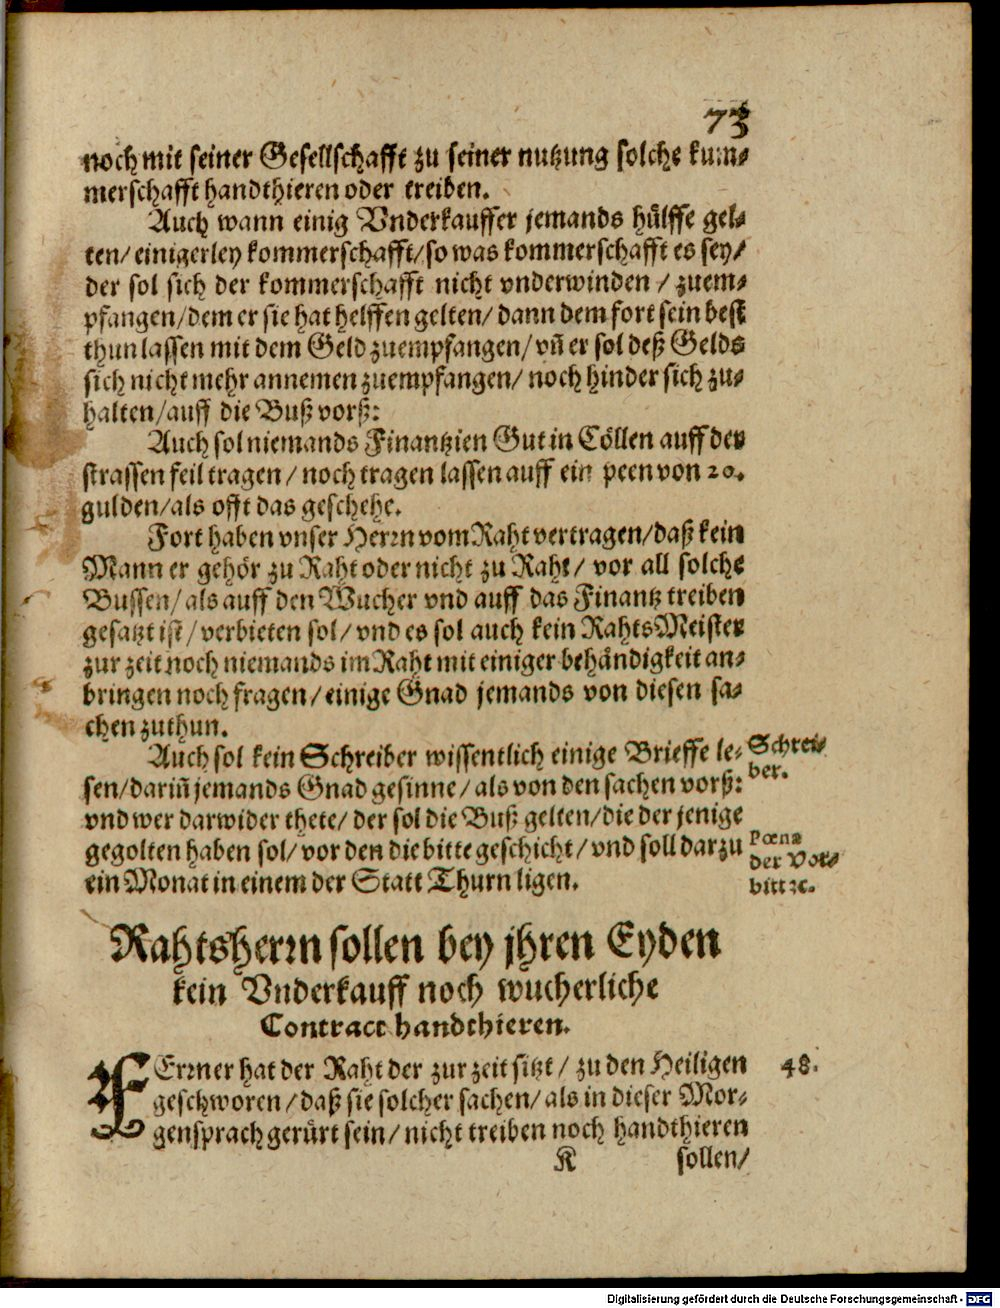 73
noch mit seiner Gesellschafft zu seiner nutzung solche kum⸗
merschafft handthieren oder treiben.
Auch wann einig Vnderkauffer jemands hülffe gel⸗
ten/ einigerley kommerschafft/ so was kommerschafft es sey/
der sol sich der kommerschafft nicht vnderwinden / zuem⸗
pfangen/ dem er sie hat helffen gelten/ dann dem fort sein best
thun lassen mit dem Geld zuempfangen/ vñ er sol deß Gelds
sich nicht mehr annemen zuempfangen/ noch hinder sich zu⸗
halten/ auff die Buß vorß:
Auch sol niemands Finantzien Gut in Cöllen auff der
strassen feil tragen / noch tragen lassen auff ein peen von 20.
gulden/ als offt das geschehe.
Fort haben vnser Herrn vom Raht vertragen/ daß kein
Mann er gehör zu Raht oder nicht zu Raht/ vor all solche
Bussen/ als auff den Wucher vnd auff das Finantz treiben
gesatzt ist / verbieten sol/ vnd es sol auch kein RahtsMeister
zur zeit noch niemands im Raht mit einiger behändigkeit an⸗
bringen noch fragen / einige Gnad jemands von diesen sa⸗
chen zuthun.
Auch sol kein Schreiber wissentlich einige Brieffe le⸗
sen/ dariñ jemands Gnad gesinne / als von den sachen vorß:
vnd wer darwider thete/ der sol die Buß gelten/ die der jenige
gegolten haben sol/ vor den die bitte geschicht / vnd soll darzu
ein Monat in einem der Statt Thurn ligen.
Schrei⸗
ber.
Pœna
der Vor⸗
bitt ꝛc.
Rahtsherrn sollen bey jhren Eyden
kein Vnderkauff noch wucherliche
Contract handthieren.
FErrner hat der Raht der zur zeit sitzt / zu den Heiligen
geschworen / daß sie solcher sachen/ als in dieser Mor⸗
gensprach gerürt sein/ nicht treiben noch handthieren
48.
K sollen/
Digitalisierung gefördert durch die Deutsche Forschungsgemeinschaft - DFG